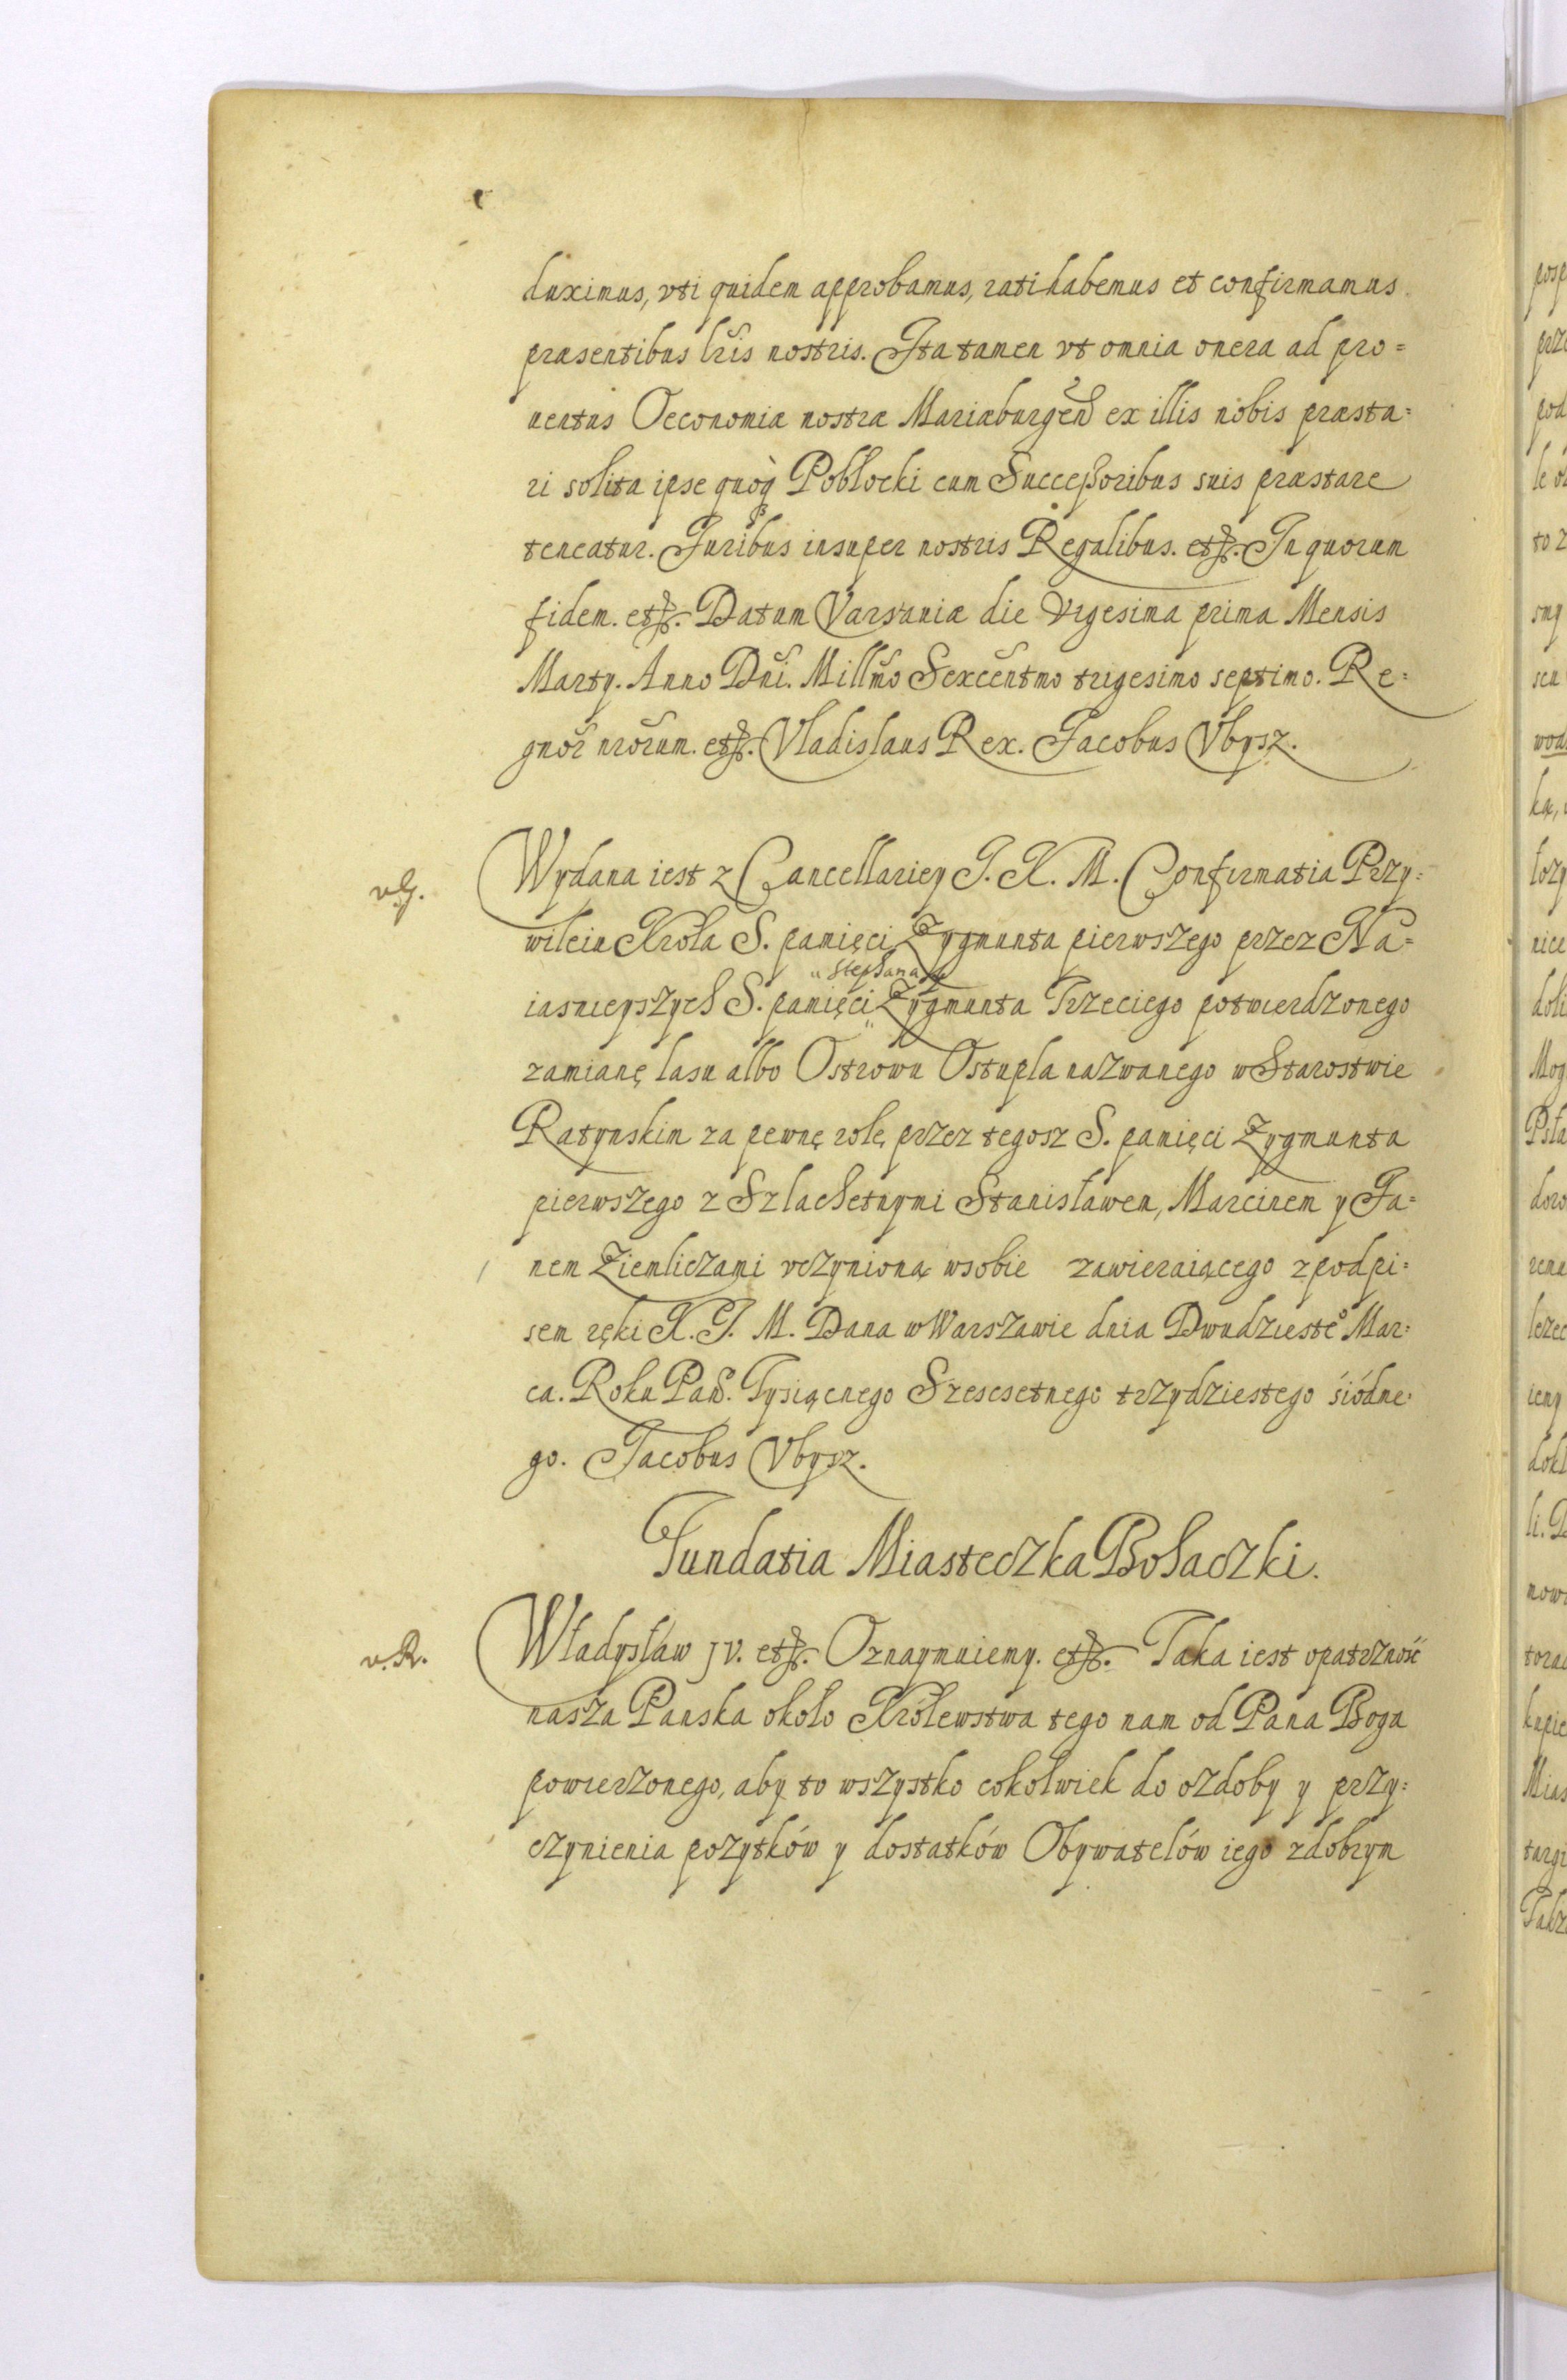 duximus, vti quidem approbamus, ratihabemus et confirmamus
præsentibus lris nostris. Ita tamen vt omnia onera ad pro=
uentus Oeconomiæ nostræ Mariæburgen ex illis nobis præsta=
ri solita ipse quoq Pobłocki cum Successoribus suis præstare
teneatur. Juribus insuper nostris Regalibus. etc. In quorum
fidem. etc. Datum Varsaniæ die vigesima prima Mensis
Marty. Anno Dni. Millmo Sexcentmo trigesimo septimo. Re=
gnor nrorum. etc. Vladislaus Rex. Jacobus Vbysz.
v. G.
Wydana iest z Cancellariey J. K. M. Confirmatia Przy=
wileiu Krola S. pamięci Zygmunta pierwszego przez Na=
„ Stephana y
iasnieyszych S. pamięci „ Zygmunta Trzeciego potwierdzonego
zamianę lasu albo Ostrowu Ostupla nazwanego w Starostwie
Ratynskim za pewnę rolę przez tegosz S. pamięci Zygmunta
pierwszego z Szlachetnymi Stanisławem, Marcinem y Ja=
nem Ziemliczami vczynioną wsobie zawieraiącego z podpi=
sem ręki K. J. M. Dana w Warszawie dnia Dwudzieste° Mar=
ca. Roku Pań. Tysiącnego Szescsetnego trzydziestego śiódne=
go. Jacobus Vbysz.
Fundatia Miasteczka Bohaczki.
v. R.
Władysłáw JV. etc. Oznaymuiemy. etc. Taka iest opatrzność
nasza Panska około Królewstwa tego nam od Pana Boga
powierzonego, aby to wszystko cokolwiek do ozdoby y przy=
czynienia pozytków y dostatków Obywatelów iego zdobrym